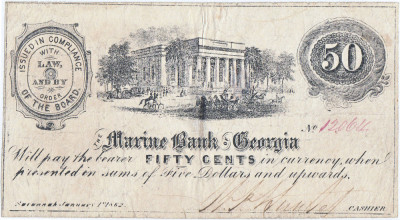 ISSUED IN COMPLIANCE
WITH
LAW,
AND BY
ORDER
OF THE BOARD.
50
No 12064
Marine Bank of Georgia
Will pay the bearer FIFTY CENTS in currency, when
presented in sums of Five Dollars and upwards.
Savannah January 1st 1862
CASHIER.